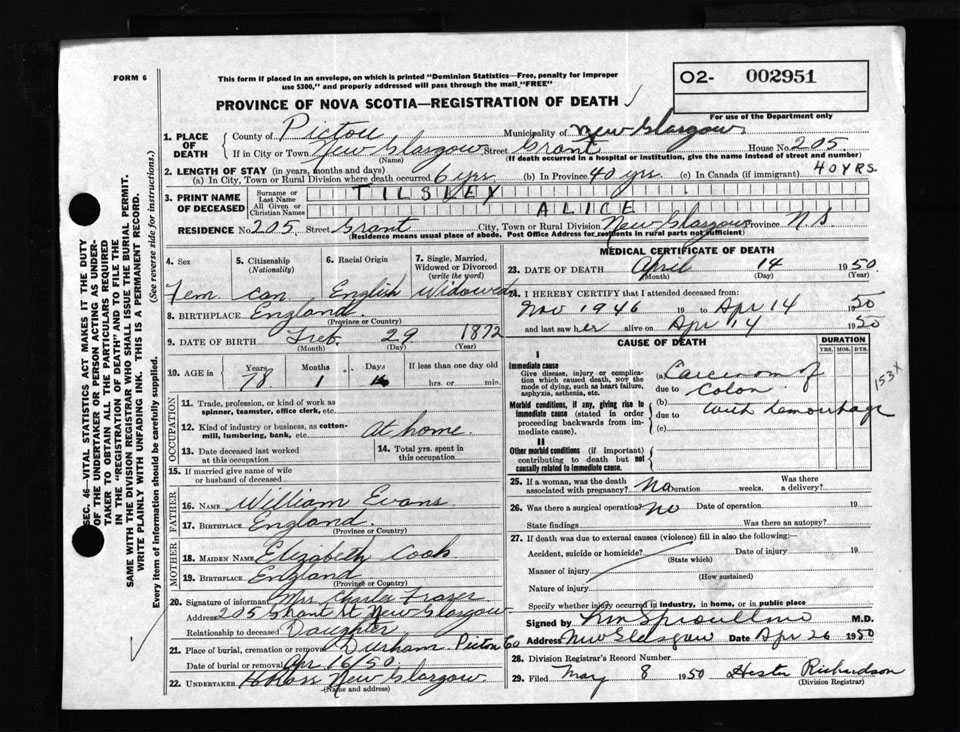 FORM 6
This form if placed in an envelope, on which is printed "Dominion Statistics—Free, penalty for improper
use $300," and properly addressed will pass through the mail "FREE"
O2- 002951
For use of the Department only
PROVINCE OF NOVA SCOTIA—REGISTRATION OF DEATH
1. PLACE OF DEATH
County of Pictou Municipality of New Glasgow
If in City or Town New Glasgow Street Grant House No. 205
(Name) (If death occurred in a hospital or institution, give the name instead of street and number)
2. LENGTH OF STAY (in years, months and days)
(a) In City, Town or Rural Division where death occurred 6 yrs. (b) In Province 40 yrs. (c) In Canada (if immigrant) 40 YRS.
3. PRINT NAME OF DECEASED
Surname or Last Name TILSLEY
All Given or Christian Names ALICE
RESIDENCE No. 205 Street Grant City, Town or Rural Division New Glasgow Province N.S
(Residence means usual place of abode. Post Office Address for residents in rural parts not sufficient)
4. Sex Fem
5. Citizenship (Nationality) Can.
6. Racial Origin English
7. Single, Married, Widowed or Divorced (write the word) Widowed
8. BIRTHPLACE England
(Province or Country)
9. DATE OF BIRTH Feb. 29 1872
(Month) (Day) (Year)
10. AGE in Years 78 Months 1 Days If less than one day old hrs. or min.
OCCUPATION
11. Trade, profession, or kind of work as spinner, teamster, office clerk, etc.
12. Kind of industry or business, as cotton-mill, lumbering, bank, etc. At home
13. Date deceased last worked at this occupation
14. Total yrs. spent in this occupation
15. If married give name of wife or husband of deceased
FATHER
16. Name William Evans
17. BIRTHPLACE England.
(Province or Country)
MOTHER
18. MAIDEN NAME Elizabeth Cook
19. BIRTHPLACE England
(Province or Country)
20. Signature of informant Mrs Charles Frazer
Address 205 Grant St New Glasgow
Relationship to deceased Daughter
21. Place of burial, cremation or removal Durham Pictou Co
Date of burial or removal Apr 16/50
22. UNDERTAKER H Ross New Glasgow
(Name and address)
MEDICAL CERTIFICATE OF DEATH
23. DATE OF DEATH April 14 1950
(Month) (Day) (Year)
24. I HEREBY CERTIFY that I attended deceased from:
Nov 1946 19 to Apr 14 1950
and last saw her alive on Apr 14 1950
CAUSE OF DEATH
DURATION
YRS. MOS. DYS.
I
Immediate cause
Give disease, injury or complication which caused death, NOT the mode of dying, such as heart failure, asphyxia, asthenia, etc.
(a) Carcinom of
due to Colon
Morbid conditions, if any, giving rise to immediate cause (stated in order proceeding backwards from immediate cause).
(b) with hemorrhage
due to
(c)
153X
II
Other morbid conditions (if important) contributing to death but not causally related to immediate cause.
25. If a woman, was the death associated with pregnancy? No Duration weeks. Was there a delivery?
26. Was there a surgical operation? No Date of operation 19
State findings Was there an autopsy?
27. If death was due to external causes (violence) fill in also the following:
Accident, suicide or homicide? Date of injury 19
(State which)
Manner of injury
(How sustained)
Nature of injury
Specify whether injury occurred in industry, in home, or in public place
Signed by M.D.
Address New Glasgow Date Apr 26 1950
28. Division Registrar's Record Number
29. Filed May 8 1950 Hester Richardson
(Division Registrar)
SEC. 46—VITAL STATISTICS ACT MAKES IT THE DUTY
OF THE UNDERTAKER OR PERSON ACTING AS UNDER-
TAKER TO OBTAIN ALL THE PARTICULARS REQUIRED
IN THE "REGISTRATION OF DEATH" AND TO FILE THE
SAME WITH THE DIVISION REGISTRAR WHO SHALL ISSUE THE BURIAL PERMIT.
WRITE PLAINLY WITH UNFADING INK. THIS IS A PERMANENT RECORD.
Every item of information should be carefully supplied. (See reverse side for instructions.)